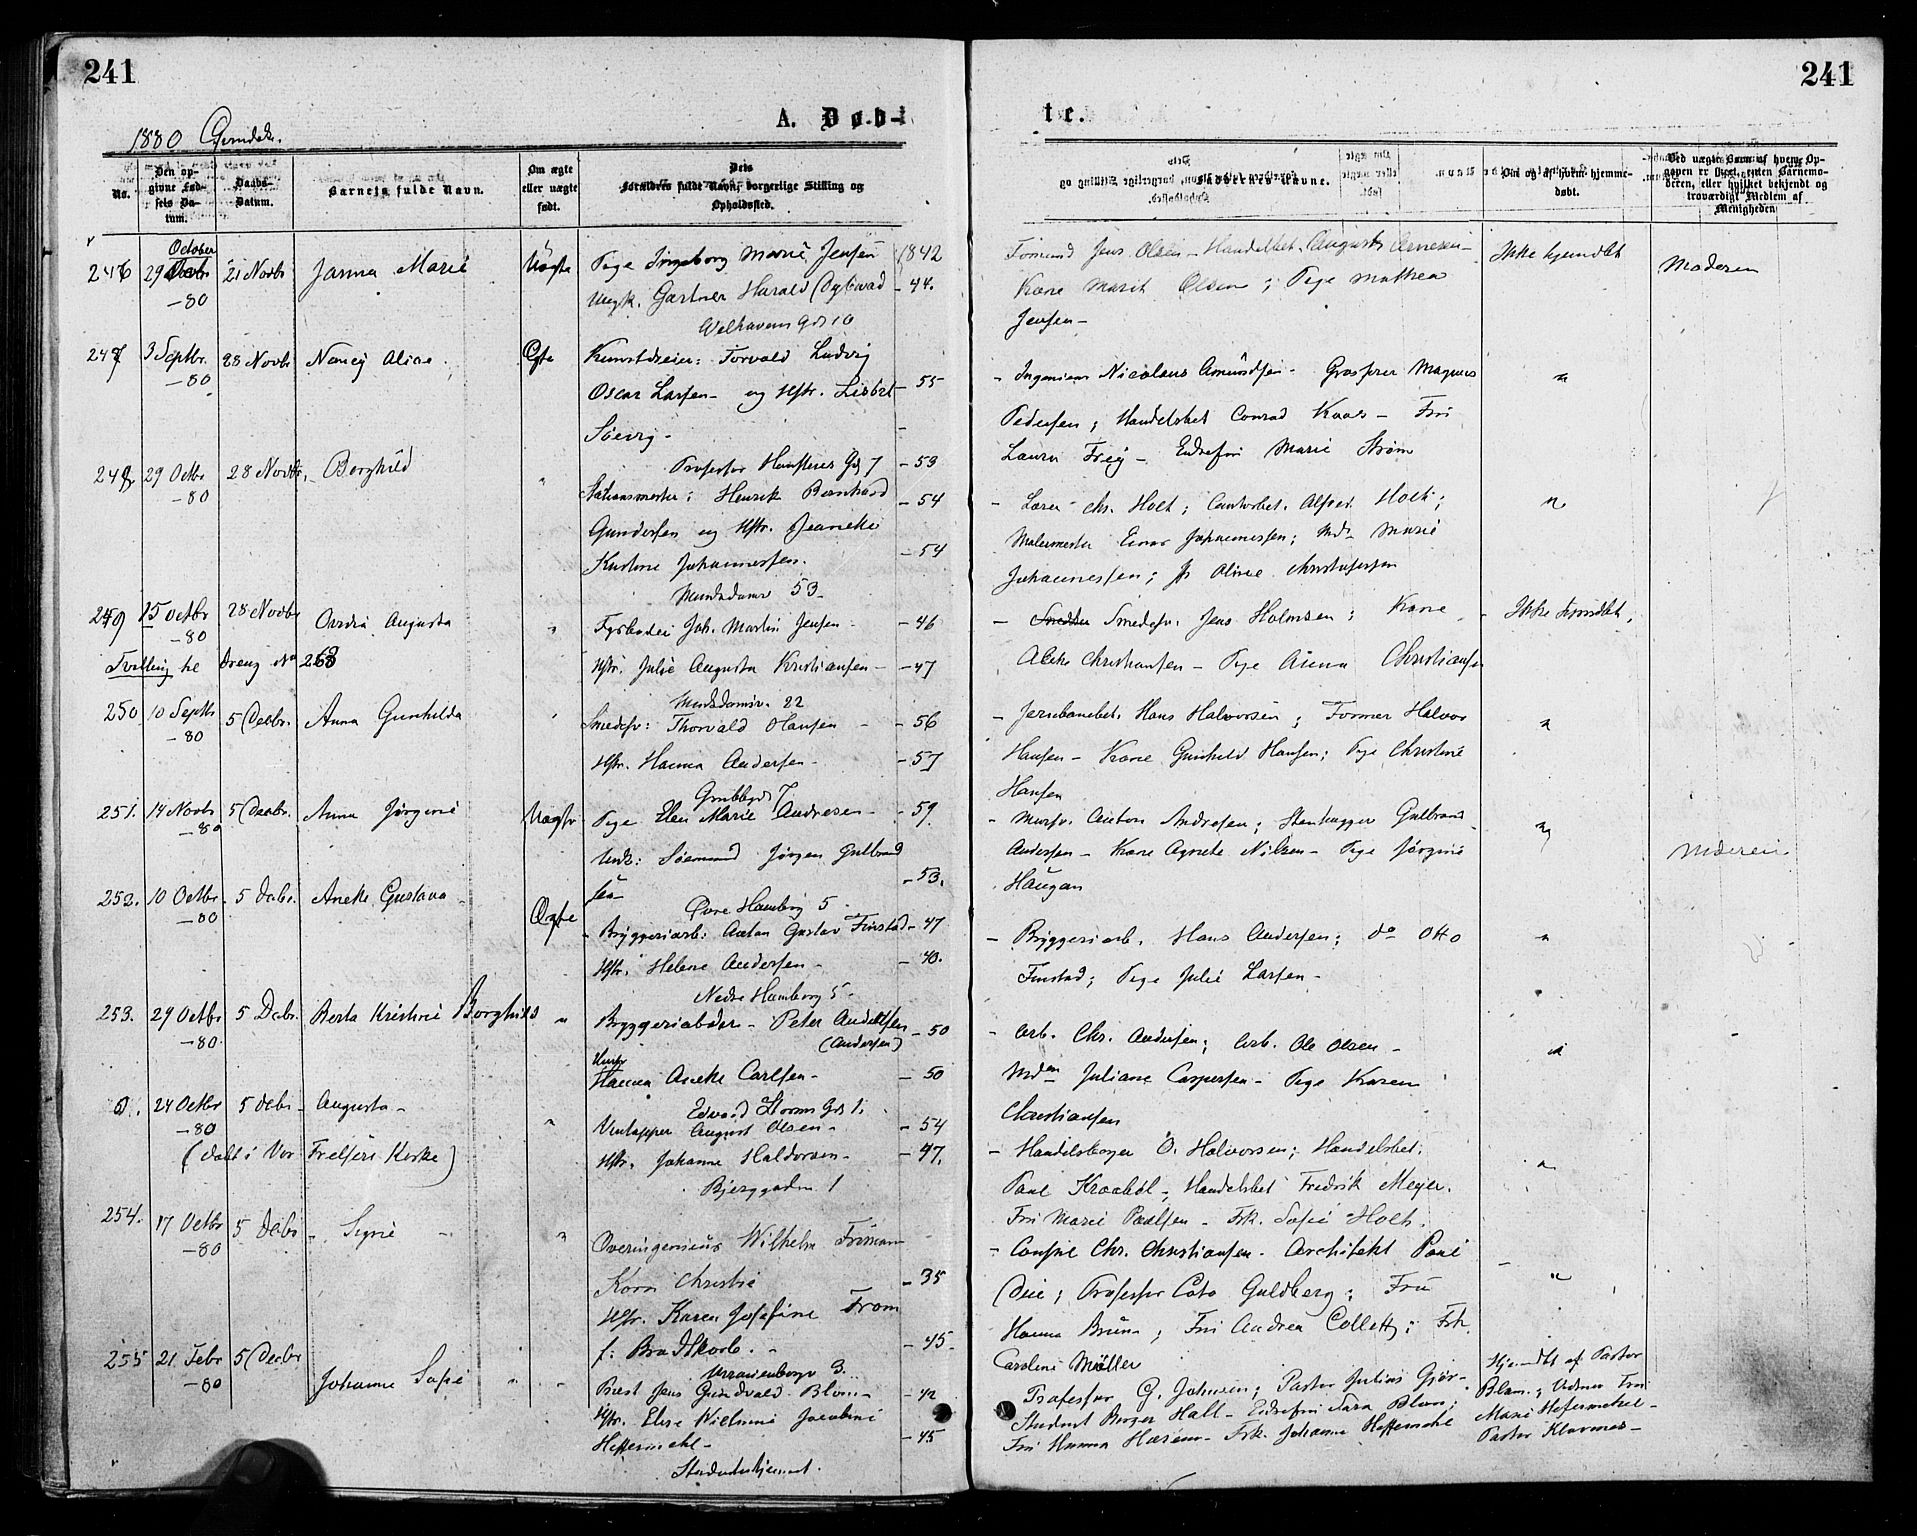 241
1880
A. Døb-
No.
Den op-
givne Fød-
sels Da-
tum.
Daabs-
Datum.
Barnets fulde Navn.
Om ægte
eller uægte
født.
Dets
Forældres fulde Navn, borgerlige Stilling og
Opholdssted.
246 October 29 -80 21 Novbr Janna Marie Uægte Pige Ingeborg Marie Jensen 1842
Ungk. Gartner Harald - 44.
Welhavens Gd 10
247 3 Septbr. -80 28 Novbr Nancy Alice Ægte Kunstdreier: Torvald Ludvig
Oscar Larsen - og Hstr. Lisbet - 55
- 53
248 29 Octbr -80 28 Novbr. Borghild " Professor Hansteens Gd 7
Stationsmester: Henrik Bernhard - 54
Gundersen og Hstr. Jeanette
Kristine Johannessen. - 54
Munkedamsv 53
249 15 Octbr -80 28 Novbr Augusta " Joh. Martin Jensen - 46
Tvilling se Dreng No 268
Hstr. Julie Augusta Kristiansen - - 47
Munkedamsv. 22
250 10 Septbr -80 5 Decbr. Anna Gunhilda " Smedsv: Thorvald Hansen - 56
Hstr. Hanna Andersen - - 57
Grubbegd 7
251. 14 Novbr -80 5 Decbr. Anna Jørgine Uægte Pige Elen Marie Andresen - - 59.
Ungk: Sømand Jørgen Gulbrand
sen - - 53.
Øvre Hamborg 5.
252. 10 Octbr -80 5 Decbr. Aneke Gustava Ægte Bryggeriarb: Anton Gustav Finstad - 47
Hstr. Helene Andersen - - 40.
Nedre Hamborg 5.
253. 29 Octbr -80 5 Decbr. Berta Kristine Borghild " Bryggeriarbider - Peter - 50
(Andersen)
Hanna Aneke Carlsen - - 50
Edvard Storms Gd 1.
0. 24 Octbr -80 5 Decbr - Augusta - " Vintapper August Olsen - - 54
(døbt i Vor Frelsers Kirke)
Hstr. Johanne Haldorsen - - 47.
Bjerggaden 1
254. 17 Octbr -80 5 Decbr - Signe " Overingeniør Wilhelm Friman
Koren Christie - 35
Hstr. Karen Josefine From
f: Bradtkorb. - 45
Uranienborgv 3.
255 21 Febr -80 5 Decbr Johanne Sofie " Præst Jens Grundvald Blom - - 42
Hstr. Elise Vilhelmine Jacobine
Heffermehl - - 45
Studenterhjemmet.
241
te.
Faddernes Navne.
Om og af hvem hjemme-
døbt.
Ved uægte Barn af hvem Op-
gaven er givet, enten Barnemo-
deren, eller hvilket bekjendt og
troværdigt Medlem af
Menigheden
Formand Jens Olsen - Handelsbet. August Arnesen - Ikke hjemdbt Moderen
Kone Marit Olsen; Pige Mathea
Jensen -
- Ingeniør Nicolaus Amundsen - Grosserer Magnus "
Pedersen; Handelsbet Conrad Kaas - Fru
Laura Frey - Enkefru Marie Strøm
- Lærer Chr. Holt; Contorbet. Alfred Holt; "
Malermester Einar Johannessen; Md. Marie
Johannessen; Olive Christofersen
- Smedsv. Jens Holmsen; Kone - Ikke hjmdbt.
Christiansen - Pige Anna Christiansen
- Jernbanebet. Hans Halvorsen; Former Halvor "
Hansen - Kone Gunhild Hansen; Pige Christine
Hansen
- Mursv. Anton Andresen; Stenhugger Gulbrand "
Andersen - Kone Agnete Nilsen - Pige Jørgine Moderen
Haugan
- Bryggeriarb. Hans Andersen; do Otto "
Finstad; Pige Julie Larsen -
- Arb. Chr. Andersen; Arb. Ole Olsen - "
Mdm Juliane Caspersen - Pige Karen
Christiansen
- Handelsborger O. Halvorsen; Handelsbet. "
Paul Handelsbet Fredrik Meyer.
Fru Marie Paulsen - Frk. Sofie Holt.
- Consul Chr. Christiansen - Architekt Paul "
Due; Professor Cato Guldberg; Fru
Hanna Bruun; Fru Andrea Collett; Frk.
Caroline Møller
Professor G. Johnsen; Pastor Julius Gjør- Hjemdbt af Pastor
Student Borger Hall - Enkefru Sara Blom; Blom; Vidner Fru
Fru Hanna Frk. Johanne Heffermehl Marie Heffermehl -
Pastor Klavenes -